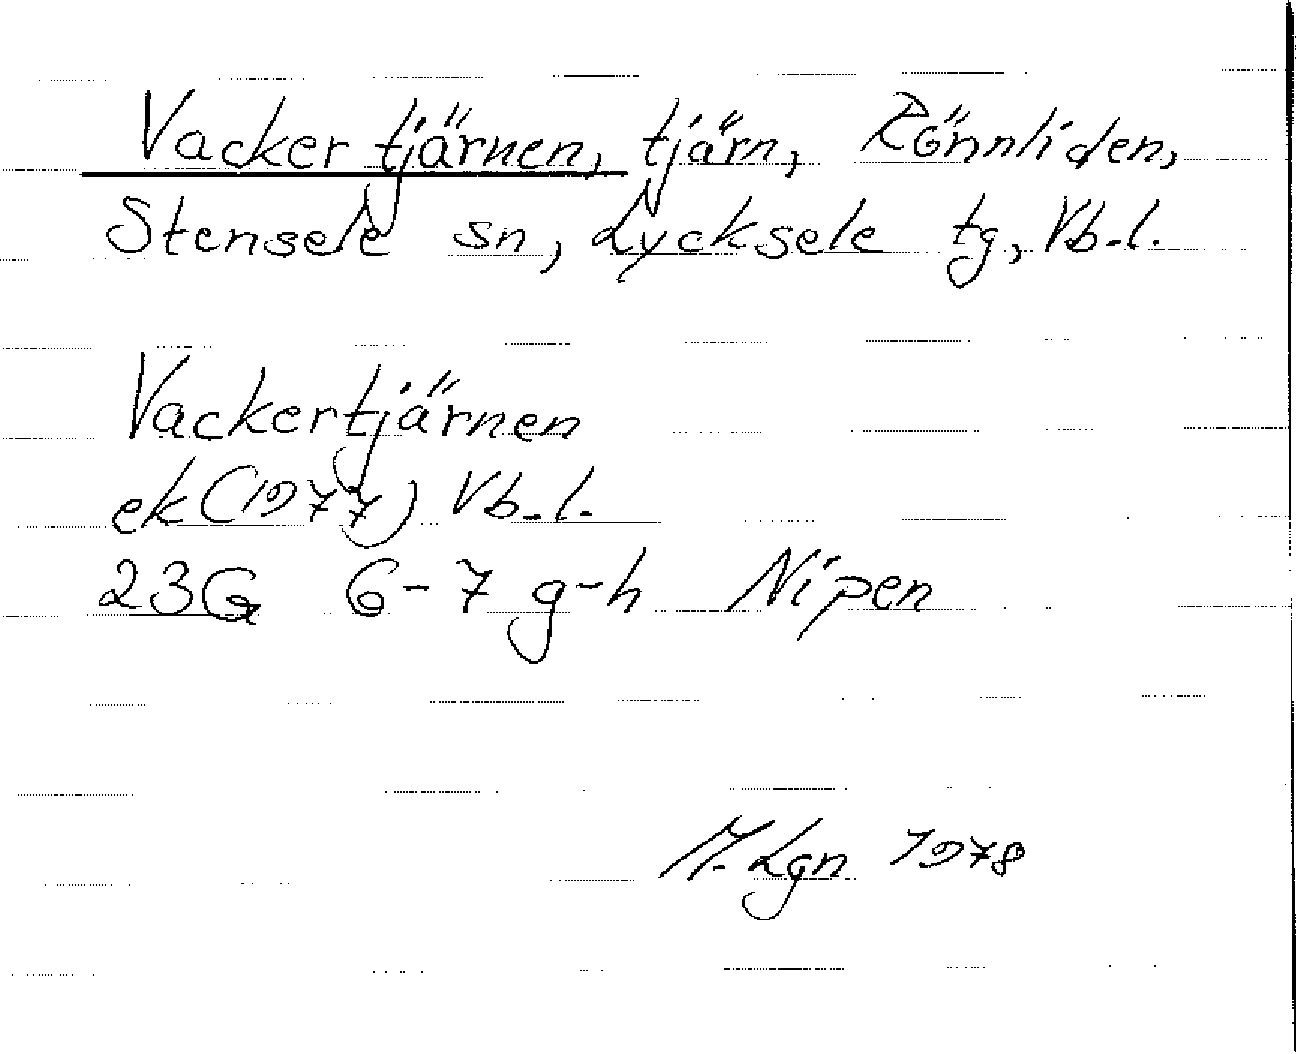 Vackertjärnen, tjärn, Rönnliden,
Stensele sn, Lycksele tg, Vb.l.
Vackertjärnen
ek (1977) Vb.l.
23G 6-7 g-h Nipen
Lgn 1978